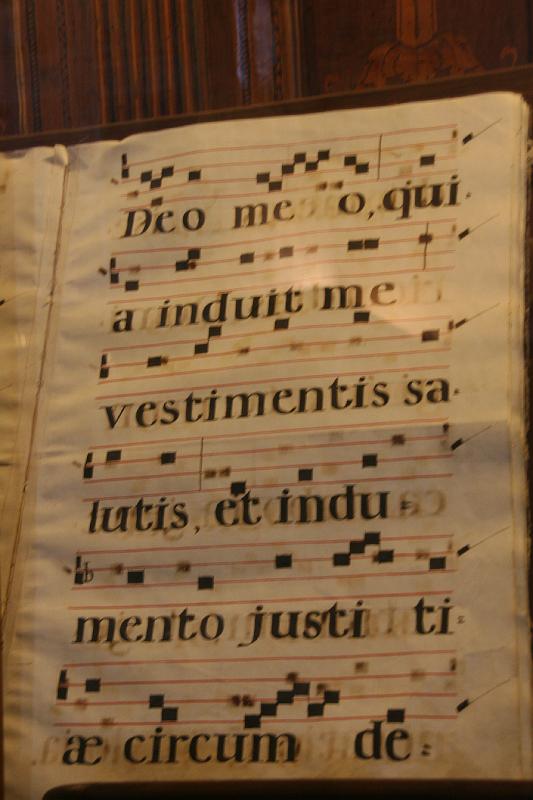 Deo meo, qui.
a induit me
vestimentis sa.
lutis, et indu=
mento justi ti=
æ circum de=